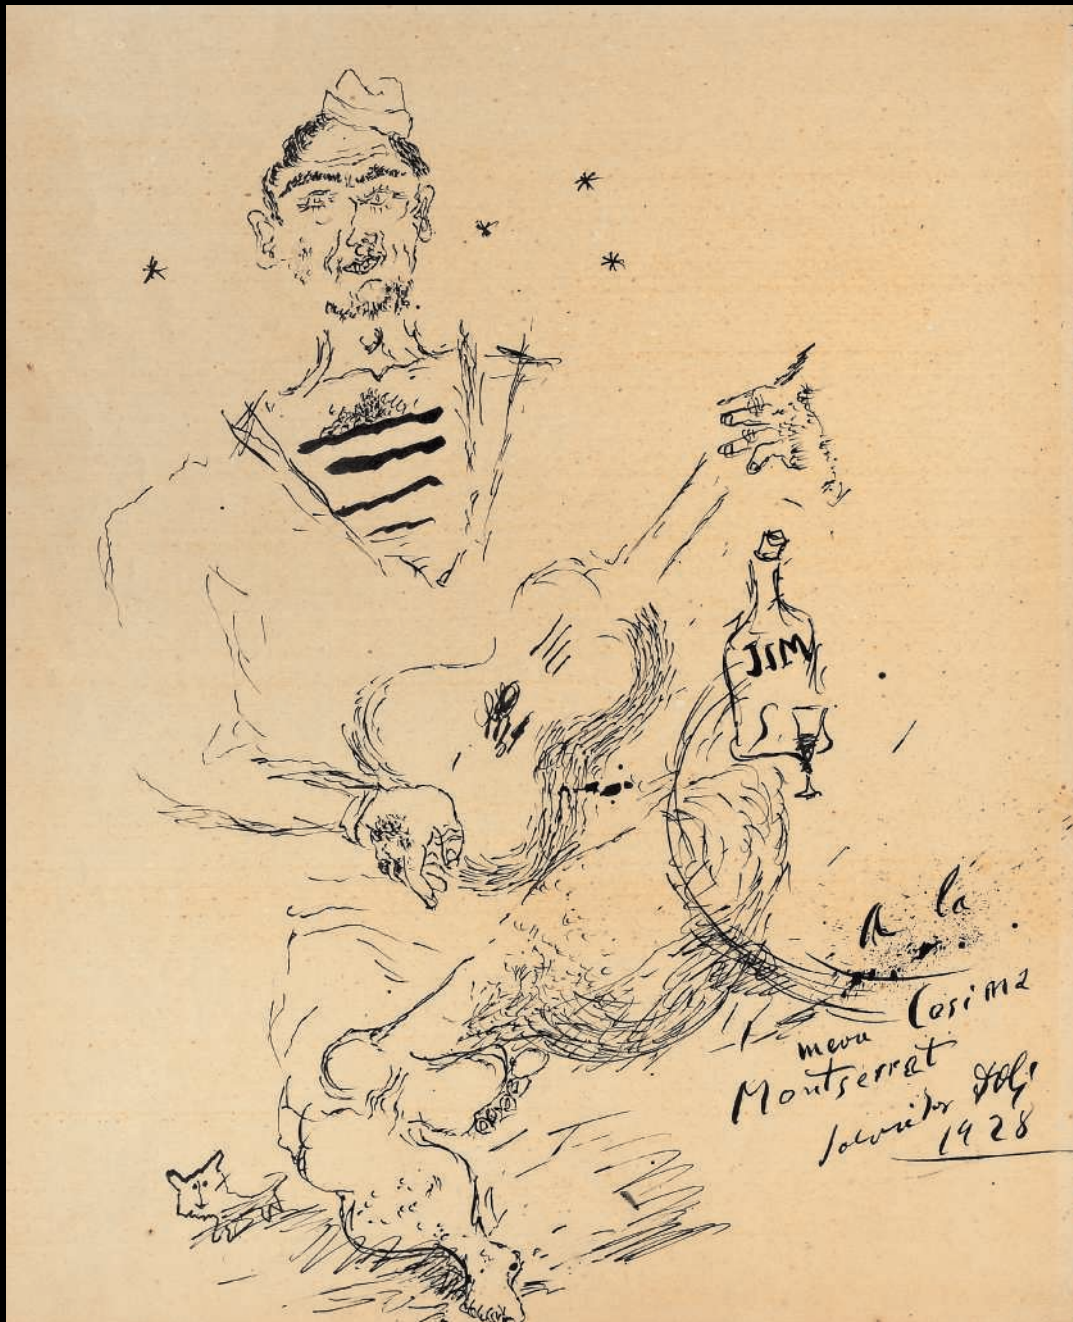 JIM
A la
meva Cosina
Montserrat
Salvador Dalí
1928